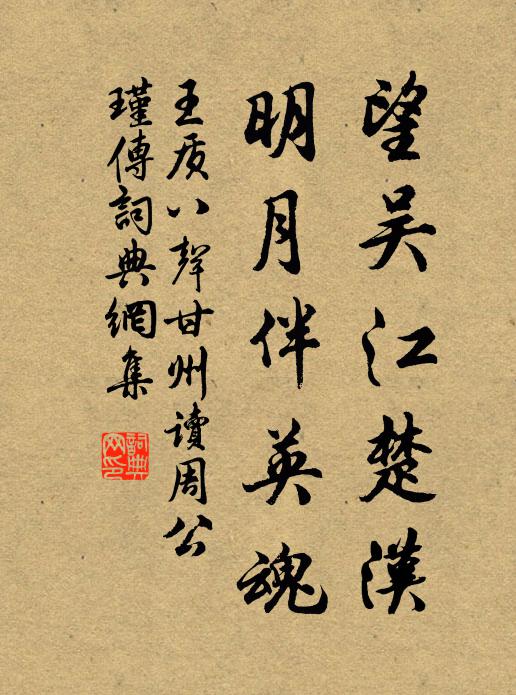 望吴江楚漢
明月伴英魂
王质八聲甘州讀周公
瑾傳詞典網集
詞典
网印